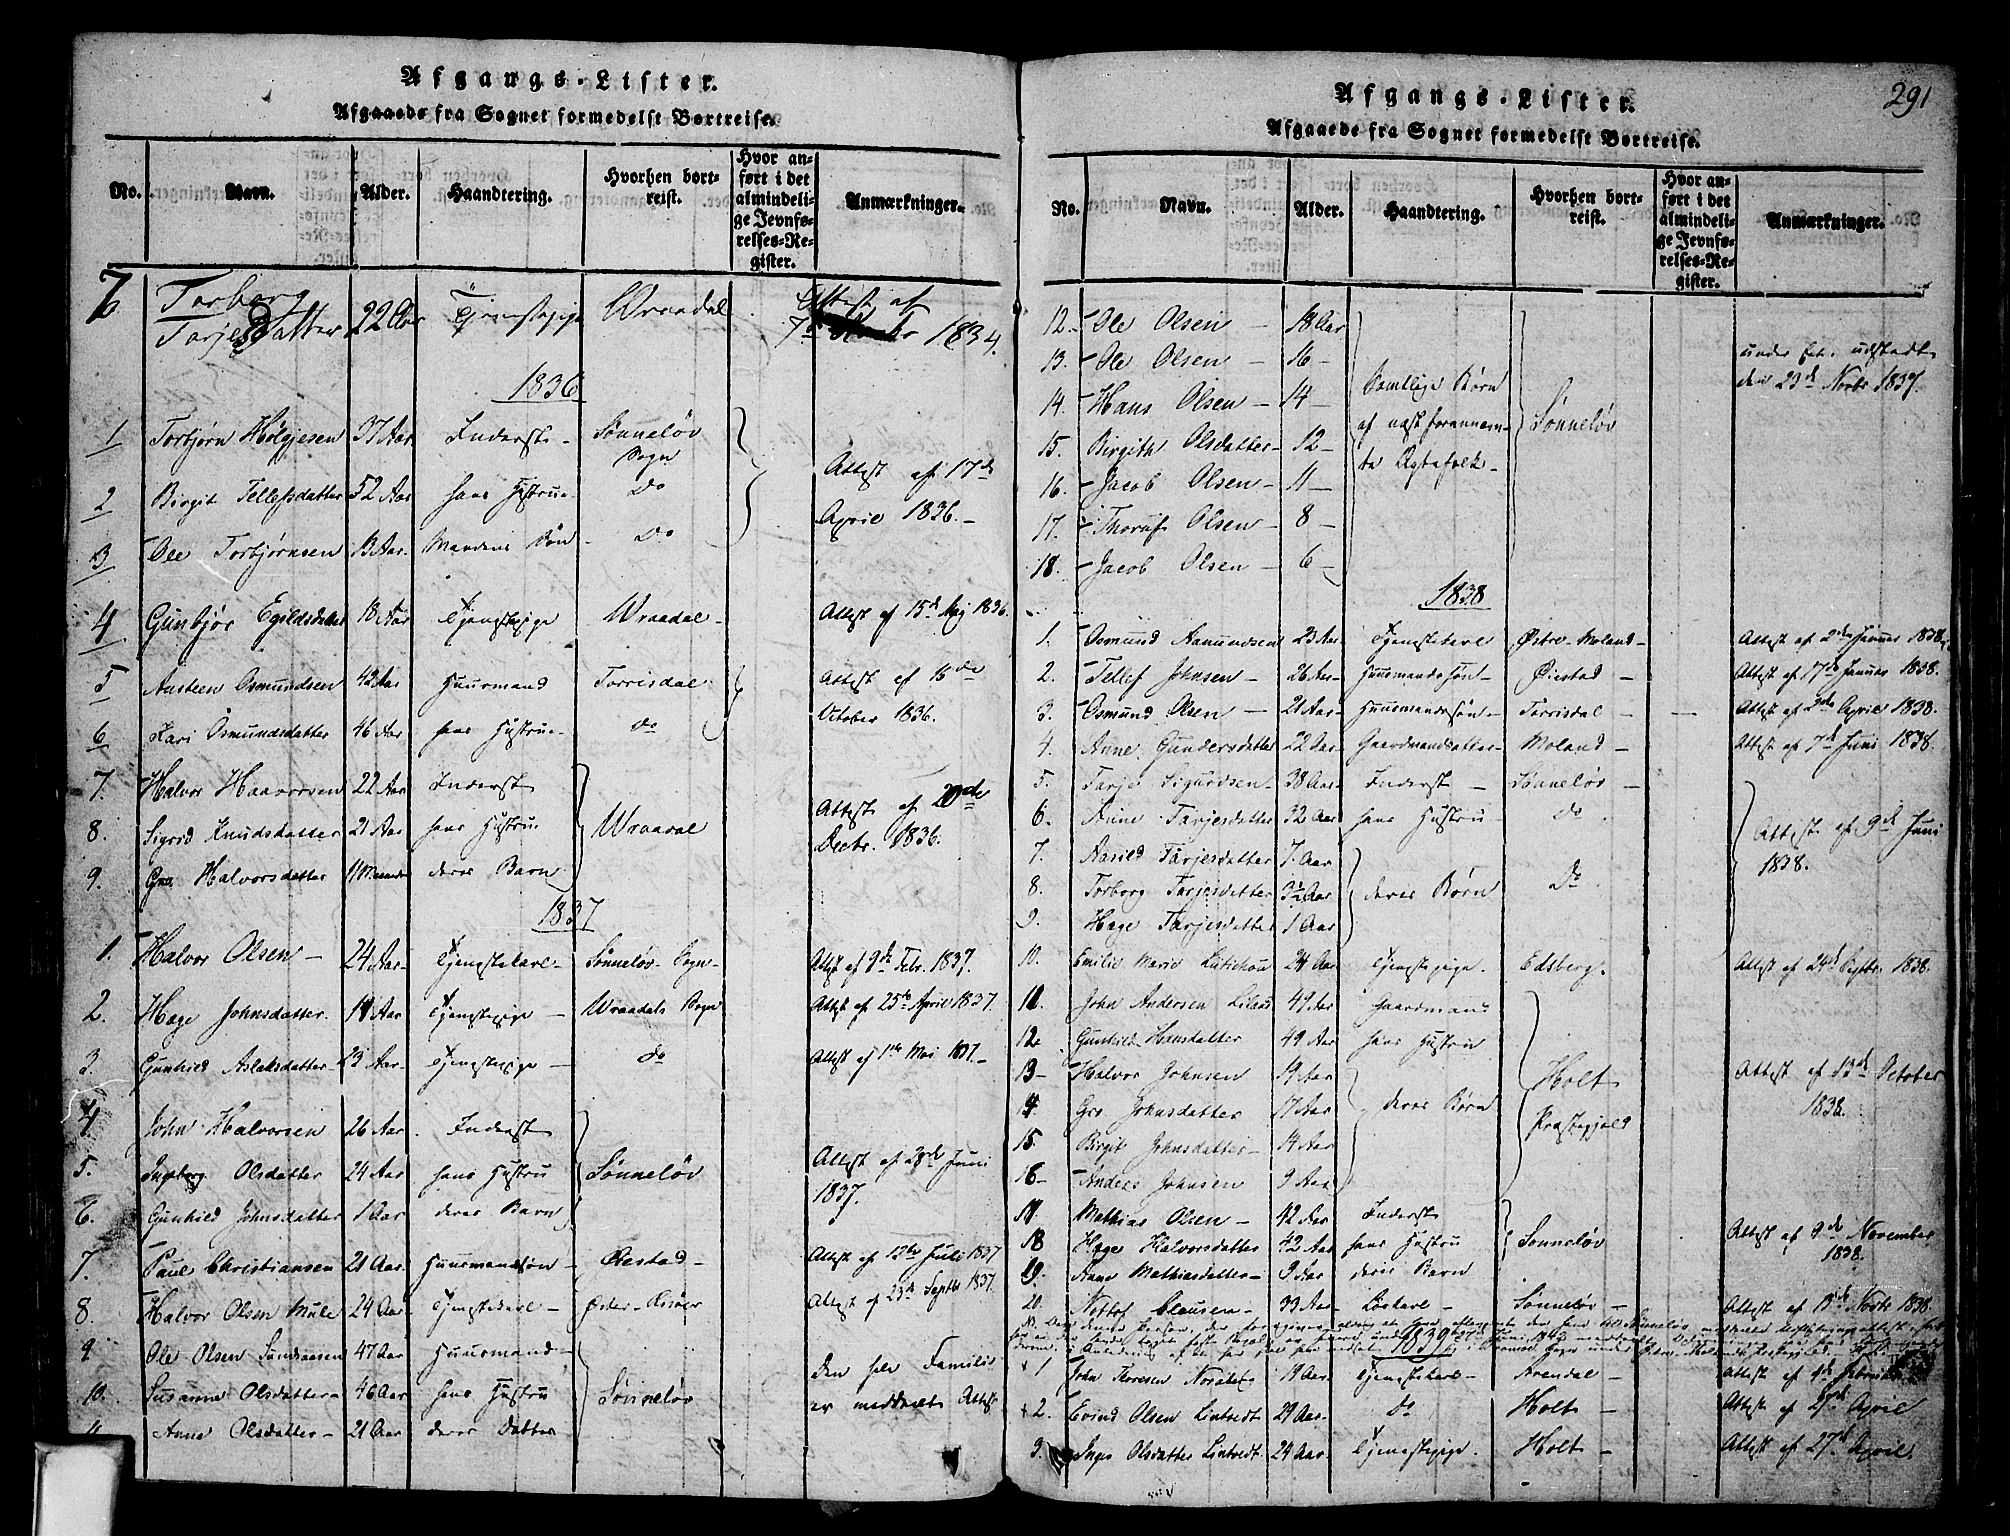 Afgangs-Lister.
Afgaaede fra Sognet formedelst Bortreise.
No. Navn. Alder. Haandtering. Hvorhen bortreist. Hvor anført i det almindelige Jevnførelses-Register. Anmærkninger.
7 Torborg Tarjesdatter 22 Aar Tjenstepige Wraadal Attest af 1834.
1836
1 Torbjørn Hølgjesen 37 Aar Inderst - Sønneløv Sogn
2 Birgit Tellefsdatter 52 Aar hans Hustrue - Do Attest af 17de April 1836. -
3 Ole Torbjørnsen 13 Aar Mandens Søn - Do
4 Gunbjør Egildsdatter 18 Aar Tjenstepige Wraadal - Attest af 15de Maj 1836.
5 Austeen Osmundsen 42 Aar Huusmand Torrisdal Attest af 16de October 1836.
6 Kari Osmundsdatter 46 Aar hans Hustrue - do
7. Halvor Haavorsen 22 Aar Inderst
8. Sigrid Knudsdatter 21 Aar hans Hustru Wraadal Attest af Decbr. 1836.
9. Gro Halvorsdatter 11 Maaneder deres Barn
1837
1. Halvor Olsen - 24 Aar - Tjenstekarl - Sønneløv - Sogn - Attest af 9de Febr. 1837.
2. Hæge Johnsdatter. Aar Tjenstepige - Wraadals Sogn Attest af 25de April 1837.
3. Gunhild Aslaksdatter 23 Aar - Tjenstepige - do Attest af 1ste Mai 1837. -
4 John Halvorsen 26 Aar Inderst
5. Ingeborg Olsdatter 24 Aar hans Hustru Sønneløv Attest af 28de Juni 1837.
6. Gunhild Johnsdatter 1 Aar deres Barn
7. Paul Christiansen 21 Aar Huusmandssøn - Øiestad - Attest af 12te Juli 1837
8. Halvor Olsen Mule 24 Aar Tjenstekarl - Øster-Risøer Attest af 23de Septbr 1837.
9 Ole Olsen 47 Aar Huusmand -
10. Susanne Olsdatter - 46 Aar hans Hustru Sønneløv Den hele Familie er meddeelt Attest
11 Anne Olsdatter - 21 Aar deres Datter
291
Afgangs-Lister.
Afgaaede fra Sognet formedelst Bortreise.
No. Navn. Alder. Haandtering. Hvorhen bortreist. Hvor anført i det almindelige Jevnførelses-Register. Anmærkninger.
12. Ole Olsen - 18 Aar
13. Ole Olsen - 16 - under udstædt den 23de Novbr 1837.
14. Hans Olsen - 14 - Samtlige Børn
15. Birgith Olsdatter - 12 - af næstforannævnte Ægtefolk - Sønneløv
16. Jacob Olsen - 11 -
17. Olsen - 8 -
18. Jacob Olsen - 6 -
1838
1. Osmund Aamundsen 23 Aar Tjenstekarl Østre - Moland - Attest af 2den Januar 1838.
2. Tellef Johnsen - 26 Aar - Huusmandssøn - Øiestad - Attest af 17de Januar 1838.
3. Osmund Olsen - 21 Aar - Huusmandssøn - Torrisdal - Attest af 3die April 1838.
4. Anne Gundersdatter 22 Aar - Gaardmandsdatter - Moland - Attest af 7de Juni 1838.
5. Tarje Sigurdsen - 38 Aar - Inderst - Sønneløv -
6. Anne Tarjesdatter 32 Aar hans Hustru - do Attest af 9de Juni 1838.
7. Aasild Tarjesdatter 7 Aar
8. Torborg Tarjesdatter 3½ Aar deres Børn Do
9. Hæge Tarjesdatter 1 Aar
10. Emilie Marie Lütichou 24 Aar Tjenstepige. Edsberg. Attest af 24de Septbr 1838.
11. John Andersen 49 Aar Gaardmand
12 Gunhild Hansdatter 49 Aar hans Hustru
13 - Halvor Johnsen 19 Aar Holt Attest af 13de October 1838.
14. Gro Johnsdatter 17 Aar deres Børn Præstegjeld
15. Birgit Johnsdatter - 14 Aar
16 - Anders Johnsen 9 Aar
17 Mathias Olsen - 42 Aar Inderst
18 Hæge Halvorsdatter 42 Aar hans Hustru Sønneløv Attest af 9de November 1838.
19. Anne Mathiasdatter - 9 Aar deres Barn
20. Nottof Clausen - 33 Aar - Løskarl - Sønneløv - Attest af Novbr 1838.
1839
1 John Toresen 19 Aar Tjenstekarl - Arendal - Attest af
2. Evind Olsen Lintvedt 29 Aar. do Holt - Attest af 27de April
3. Inger Olsdatter Lintvedt. 24 Aar. Tjenstepige. Holt - Attest af 27de April.